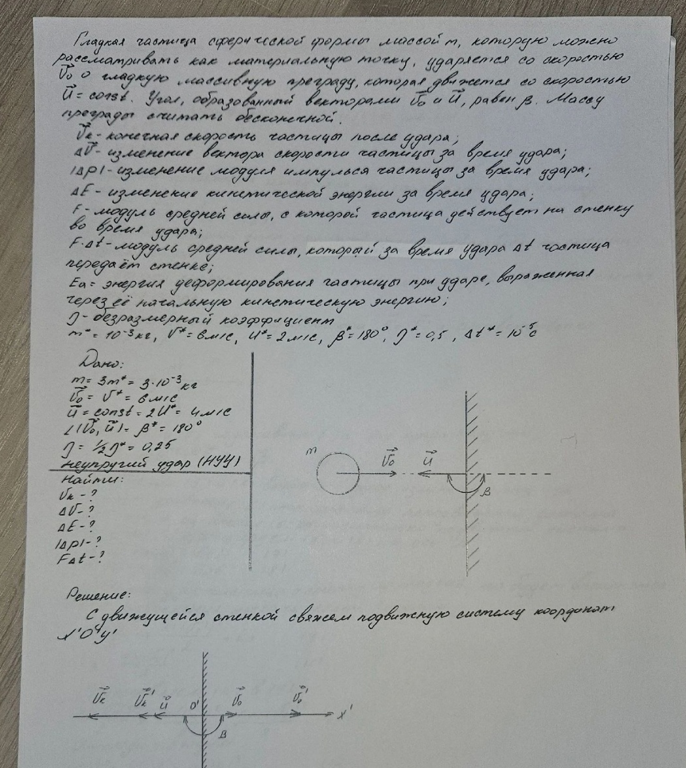 Гладкая частица сферической формы массой m, которую можно
рассматривать как материальную точку, ударяется со скоростью
V⃗₀ о гладкую массивную преграду, которая движется со скоростью
U⃗ = const. Угол, образованный векторами V⃗₀ и U⃗, равен β. Массу
преграды считать бесконечной.
V⃗к - конечная скорость частицы после удара;
ΔV⃗ - изменение вектора скорости частицы за время удара;
|Δp| - изменение модуля импульса частицы за время удара;
ΔE - изменение кинетической энергии за время удара;
F - модуль средней силы, с которой частица действует на стенку
во время удара;
F·Δt - модуль средней силы, который за время удара Δt частица
передаёт стенке;
Eд = энергия деформирования частицы при ударе, выраженная
через её начальную кинетическую энергию;
η - безразмерный коэффициент
m* = 10⁻³ кг, V* = 6 м/с, U* = 2 м/с, β* = 180°, η* = 0,5, Δt* = 10⁻⁵ с
Дано:
m = 3m* = 3·10⁻³ кг
V⃗₀ = V* = 6 м/с
U⃗ = const = 2U* = 4 м/с
∠(V⃗₀, U⃗) = β* = 180°
η = ½η* = 0,25
неупругий удар (НУУ)
Найти:
Vк - ?
ΔV - ?
ΔE - ?
|Δp| - ?
FΔt - ?
m V⃗₀ U⃗ β
Решение:
С движущейся стенкой свяжем подвижную систему координат
X'O'Y'
V⃗к V⃗к' U⃗ O' V⃗₀ V⃗₀' X'
β